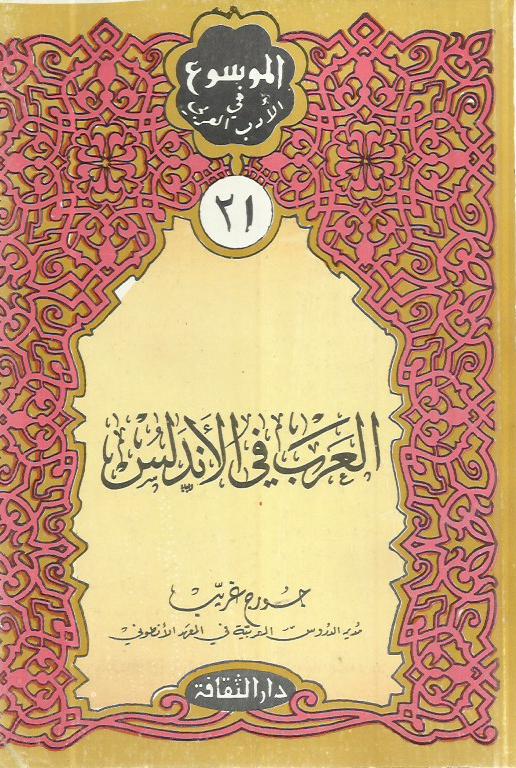 الموسوع
في
الأدب العربي
٢١
العرب في الأندلس
جورج غريّب
مدير الدروس العربيّة في المعهد الأنطوني
دار الثقافة